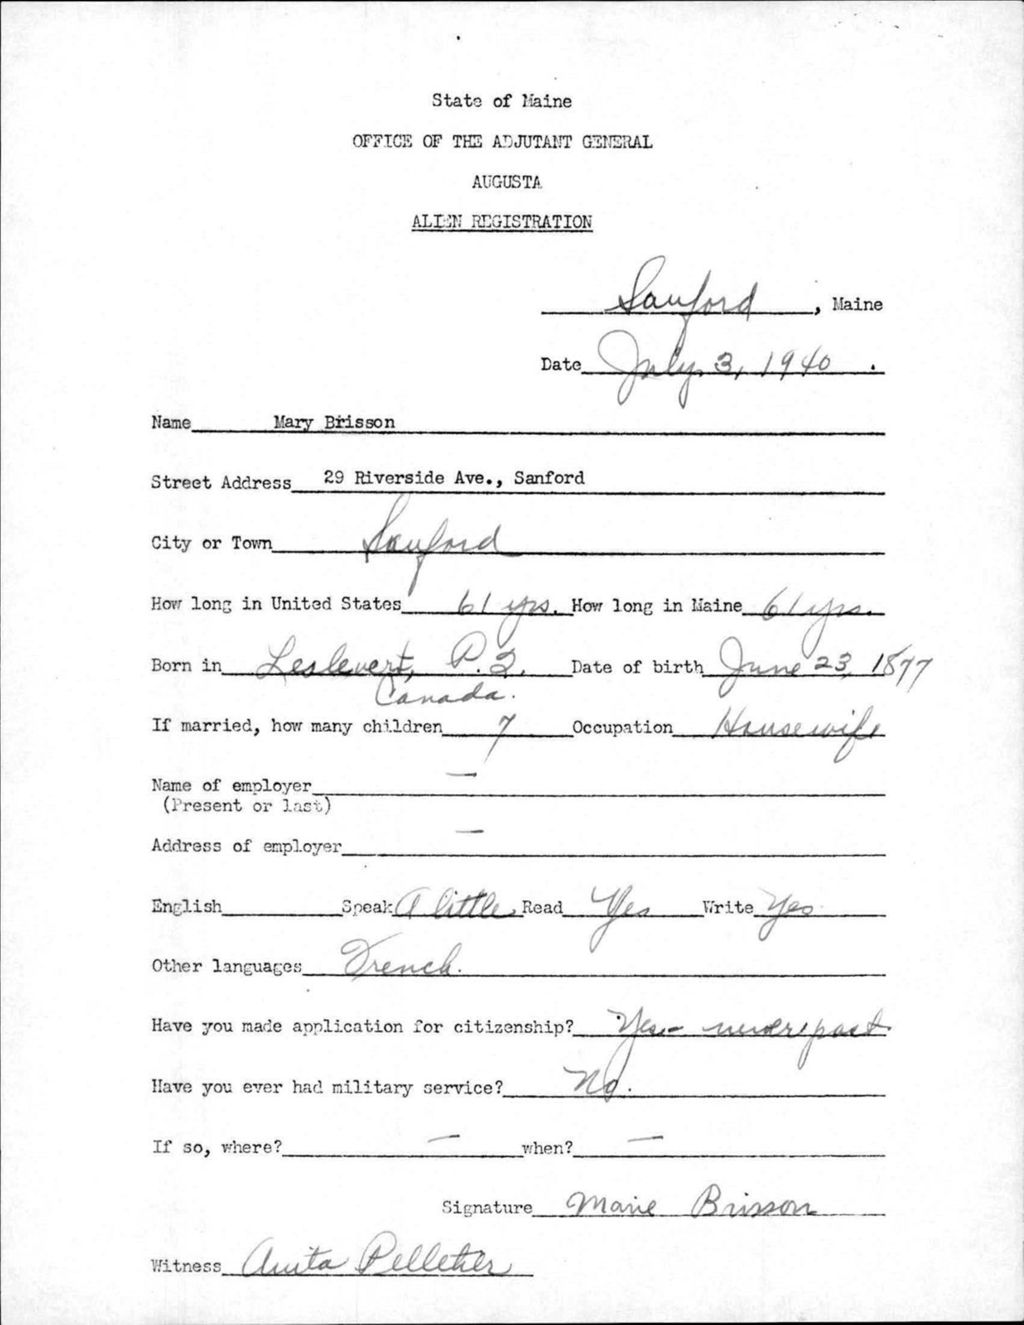 State of Maine
OFFICE OF THE ADJUTANT GENERAL
AUGUSTA
ALIEN REGISTRATION
Sanford, Maine
Date July 3, 1940.
Name Mary Brisson
Street Address 29 Riverside Ave., Sanford
City or Town Sanford
How long in United States 61 yrs. How long in Maine 61 yrs.
Born in P.Q. Date of birth June 23, 1877
Canada.
If married, how many children 7 Occupation Housewife
Name of employer —
(Present or last)
Address of employer —
English Speak A little Read Yes Write Yes
Other languages French.
Have you made application for citizenship? Yes - never past
Have you ever had military service? No.
If so, where? — when? —
Signature Marie Brisson
Witness Anita Pelletier